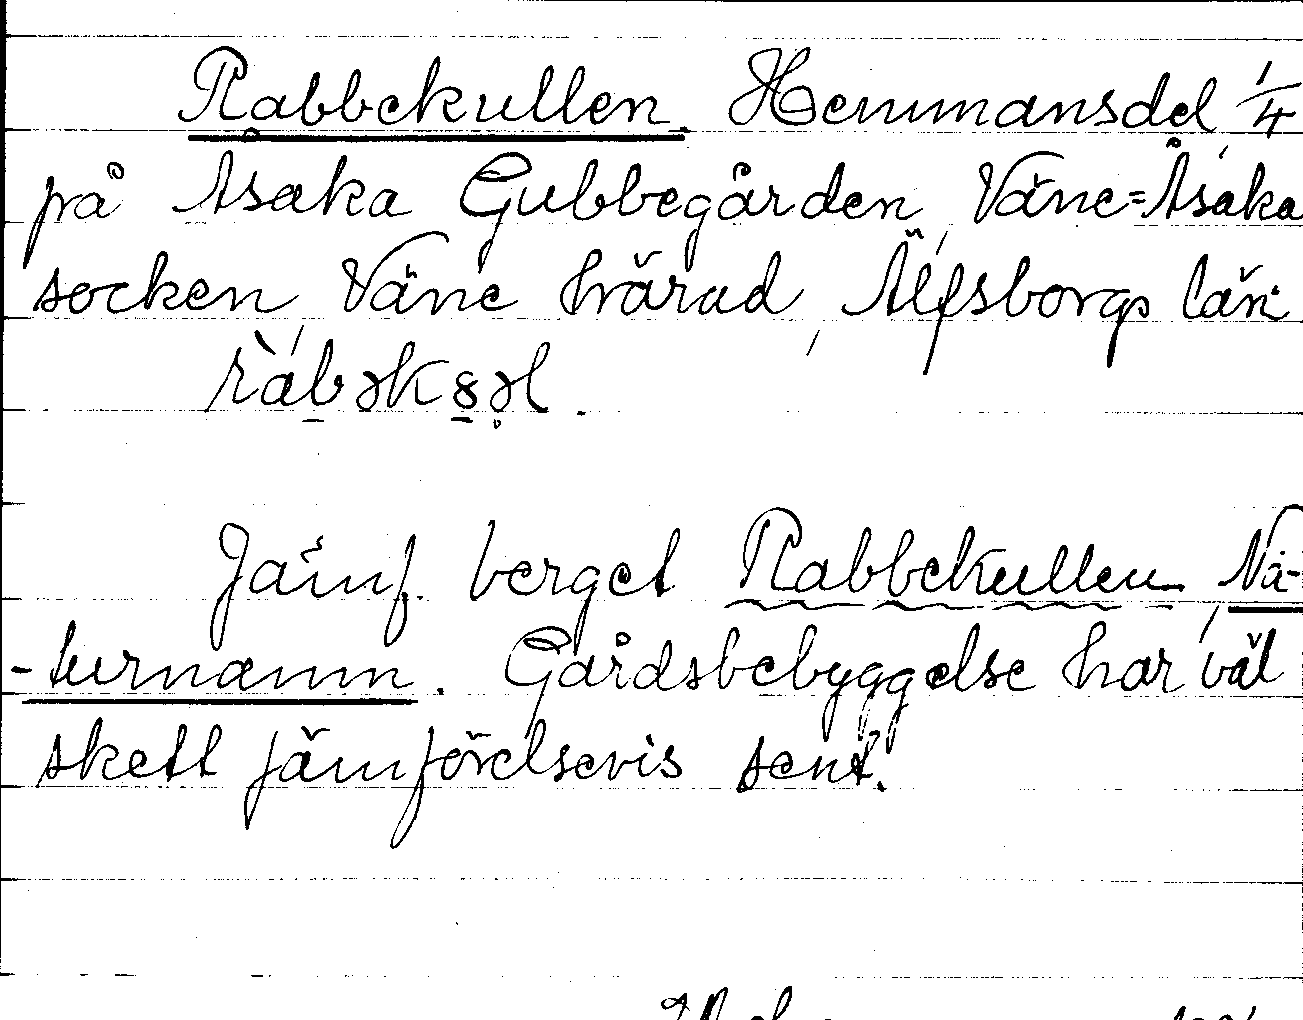 Rabbekullen. Hemmansdel, 1/4
på Åsaka Gubbegården, Väne=Åsaka
socken, Väne härad, Älfsborgs län.
Jämf. berget Rabbekullen, Na-
-turnamn. Gårdsbebyggelse har väl
skett jämförelsevis sent.